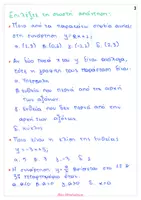 Επιλέξτε τη σωστή απάντηση:
• Ποιο από τα παρακάτω σημεία ανήκει
στη συνάρτηση y=8x+2;
α. (1,3) β. (0,2) γ. (-1,2) δ. (2,3)
• Αν δύο ποσά των y είναι ανάλογα,
τότε η γραφική τους παράσταση είναι:
α. Υπερβολή
β. ευθεία που περνά από την αρχή
των αξόνων
γ. ευθεία που δεν περνά από την
αρχή των αξόνων
δ. κύκλος
• Ποια είναι η κλίση της ευθείας
y=-3x+5;
α. 5 β. 3 γ. -3 δ. 2
• Η συνάρτηση y=α/x βρίσκεται στο 1ο &
3ο τεταρτημόριο όταν:
α. α<0 β. α=0 γ. α>0 δ.